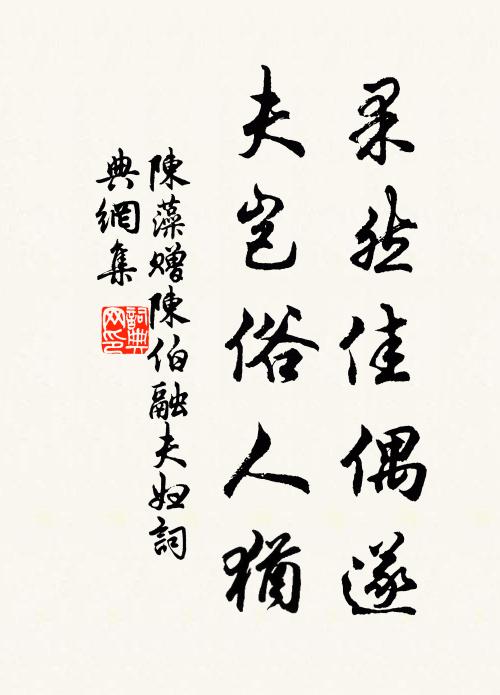 果然佳偶遂
夫岂俗人猶
陳藻贈陳伯融夫妞詞
典網集
詞典网印